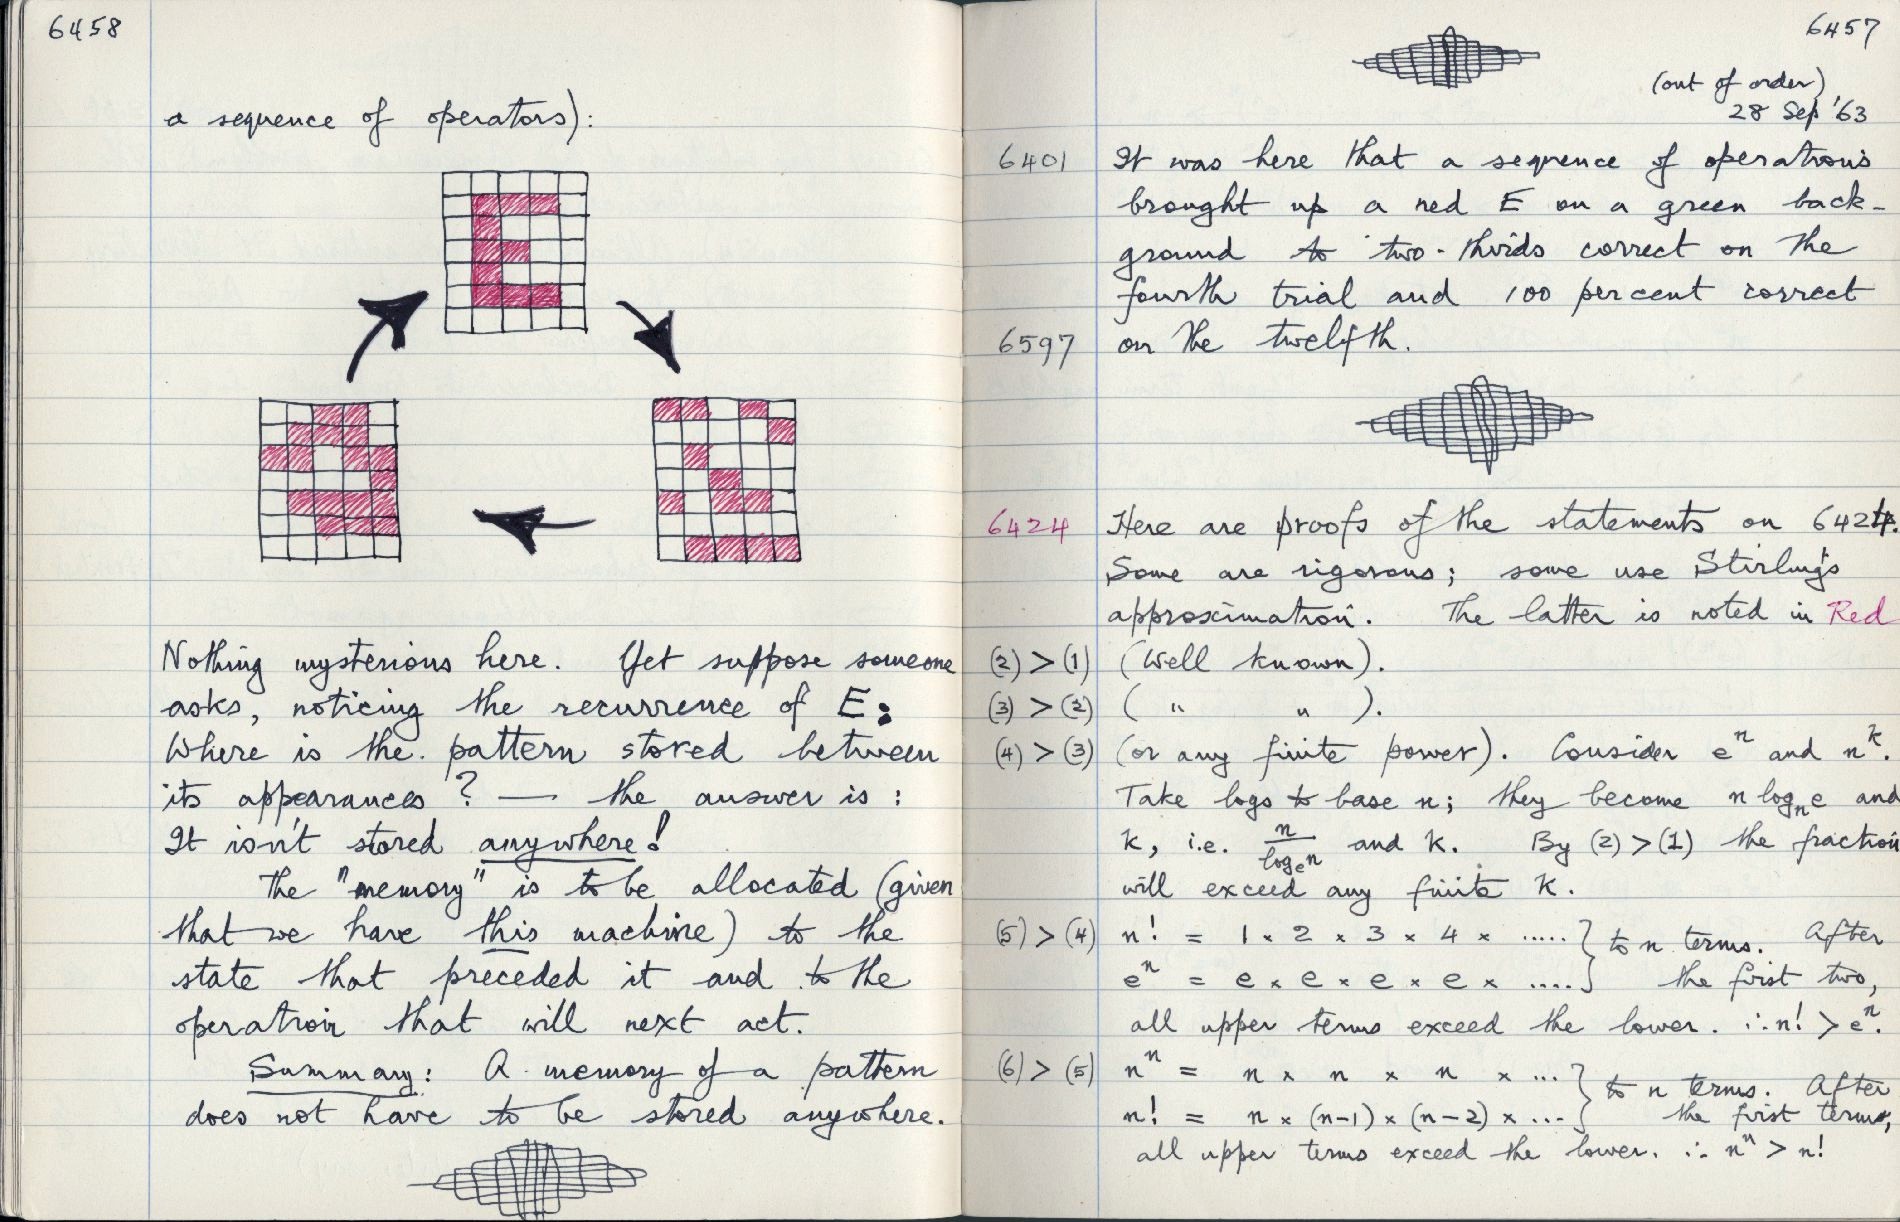 6458
a sequence of operators):
Nothing mysterious here. Yet suppose someone
asks, noticing the recurrence of E:
Where is the pattern stored between
its appearances? — the answer is:
It isn't stored anywhere!
The "memory" is to be allocated (given
that we have this machine) to the
state that preceded it and to the
operation that will next act.
Summary: A memory of a pattern
does not have to be stored anywhere.
6457
(out of order)
28 Sep '63
6401 It was here that a sequence of operations
brought up a red E on a green back-
ground to two-thirds correct on the
fourth trial and 100 per cent correct
6597 on the twelfth.
6424 Here are proofs of the statements on 6424.
Some are rigorous; some use Stirling's
approximation. The latter is noted in Red
(2) > (1) (Well known).
(3) > (2) ( " " ).
(4) > (3) (or any finite power). Consider eⁿ and nᵏ.
Take logs to base n; they become n logₙe and
k, i.e. n/logₑn and k. By (2) > (1) the fraction
will exceed any finite k.
(5) > (4) n! = 1 × 2 × 3 × 4 × ..... } to n terms. After
eⁿ = e × e × e × e × ..... } the first two,
all upper terms exceed the lower. ∴ n! > eⁿ.
(6) > (5) nⁿ = n × n × n × ... } to n terms. After
n! = n × (n-1) × (n-2) × ... } the first terms,
all upper terms exceed the lower. ∴ nⁿ > n!